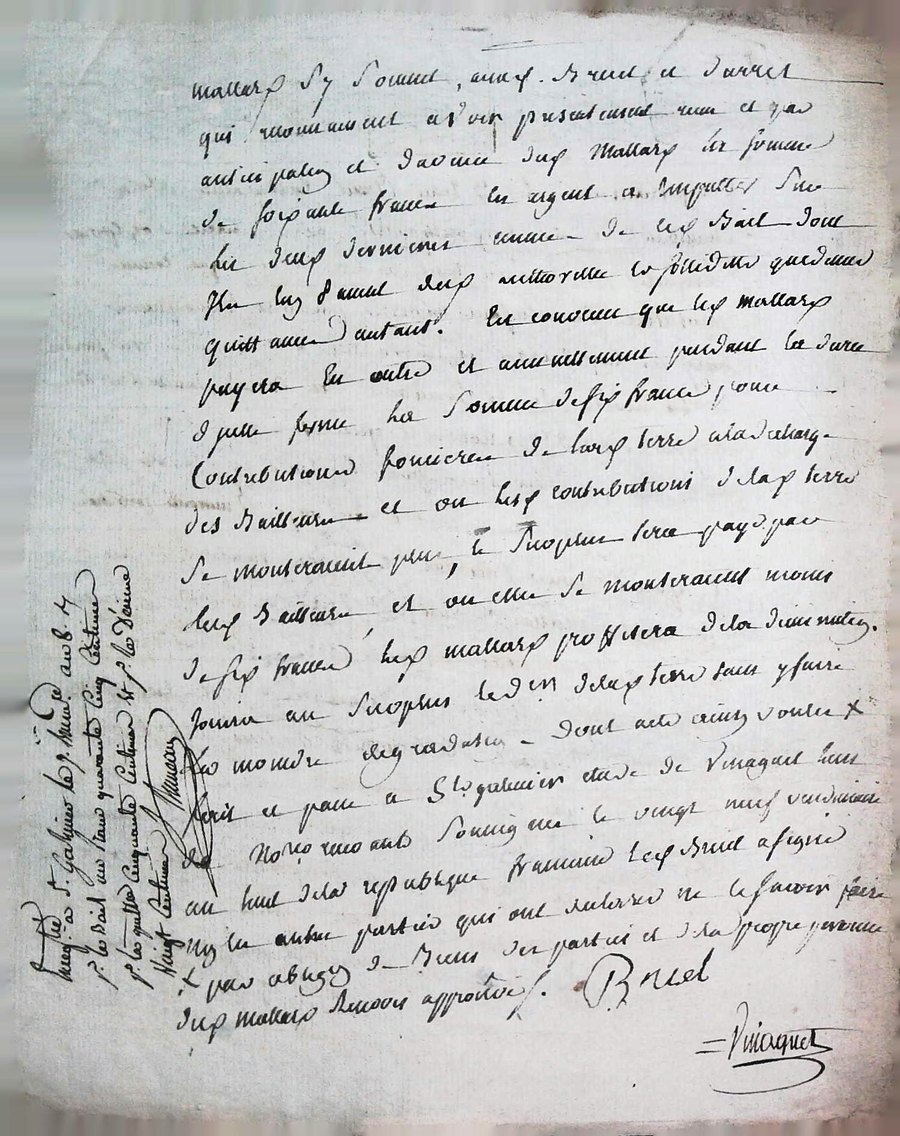 mallard sy soumet, auxq. Bruel et
qui reconnaissent avoir présentement reçu et par
anticipation et davance dud. Mallard la somme
de soixante francs en argent a imputter sur
les deux dernieres année de ced. Bail dont
quittance d'autant. Est convenu que led. mallard
payera en outre et annuellement pendant la durée
d jcelle ferme la somme de six francs pour
Contributions foncieres de lad. terre a la décharge
des Bailleurs et ou lesd. contributions de lad. terre
se monteraient plus, le surplus sera payé par
lesd. Bailleurs, et ou elles se monteraient moins
de six francs, led. mallard proffitera de la diminution.
Jouira au surplus led. de lad. terre sans y faire
la moindre degradation - dont acte ainsy voulu X
fait et passé a St. galmier étude de Vinagnet lun
des Nores recevants soussigné le vingt neuf vendémiaire
an huit de la republique francaise led. Bruel a signé
non les autres parties qui ont declaré ne le savoir faire
X par obligation de Biens des parties et de la propre personne
dud. mallard Renvois approuvé.
Bruel
Vinagnet
Enregtré à St. Galmier le 7. Brumre an 8. Rx
pr. le Bail un franc quarante Cinq Centimes
pr. la quittce Cinquante Centimes et pr. le Décime
Vingt Centimes